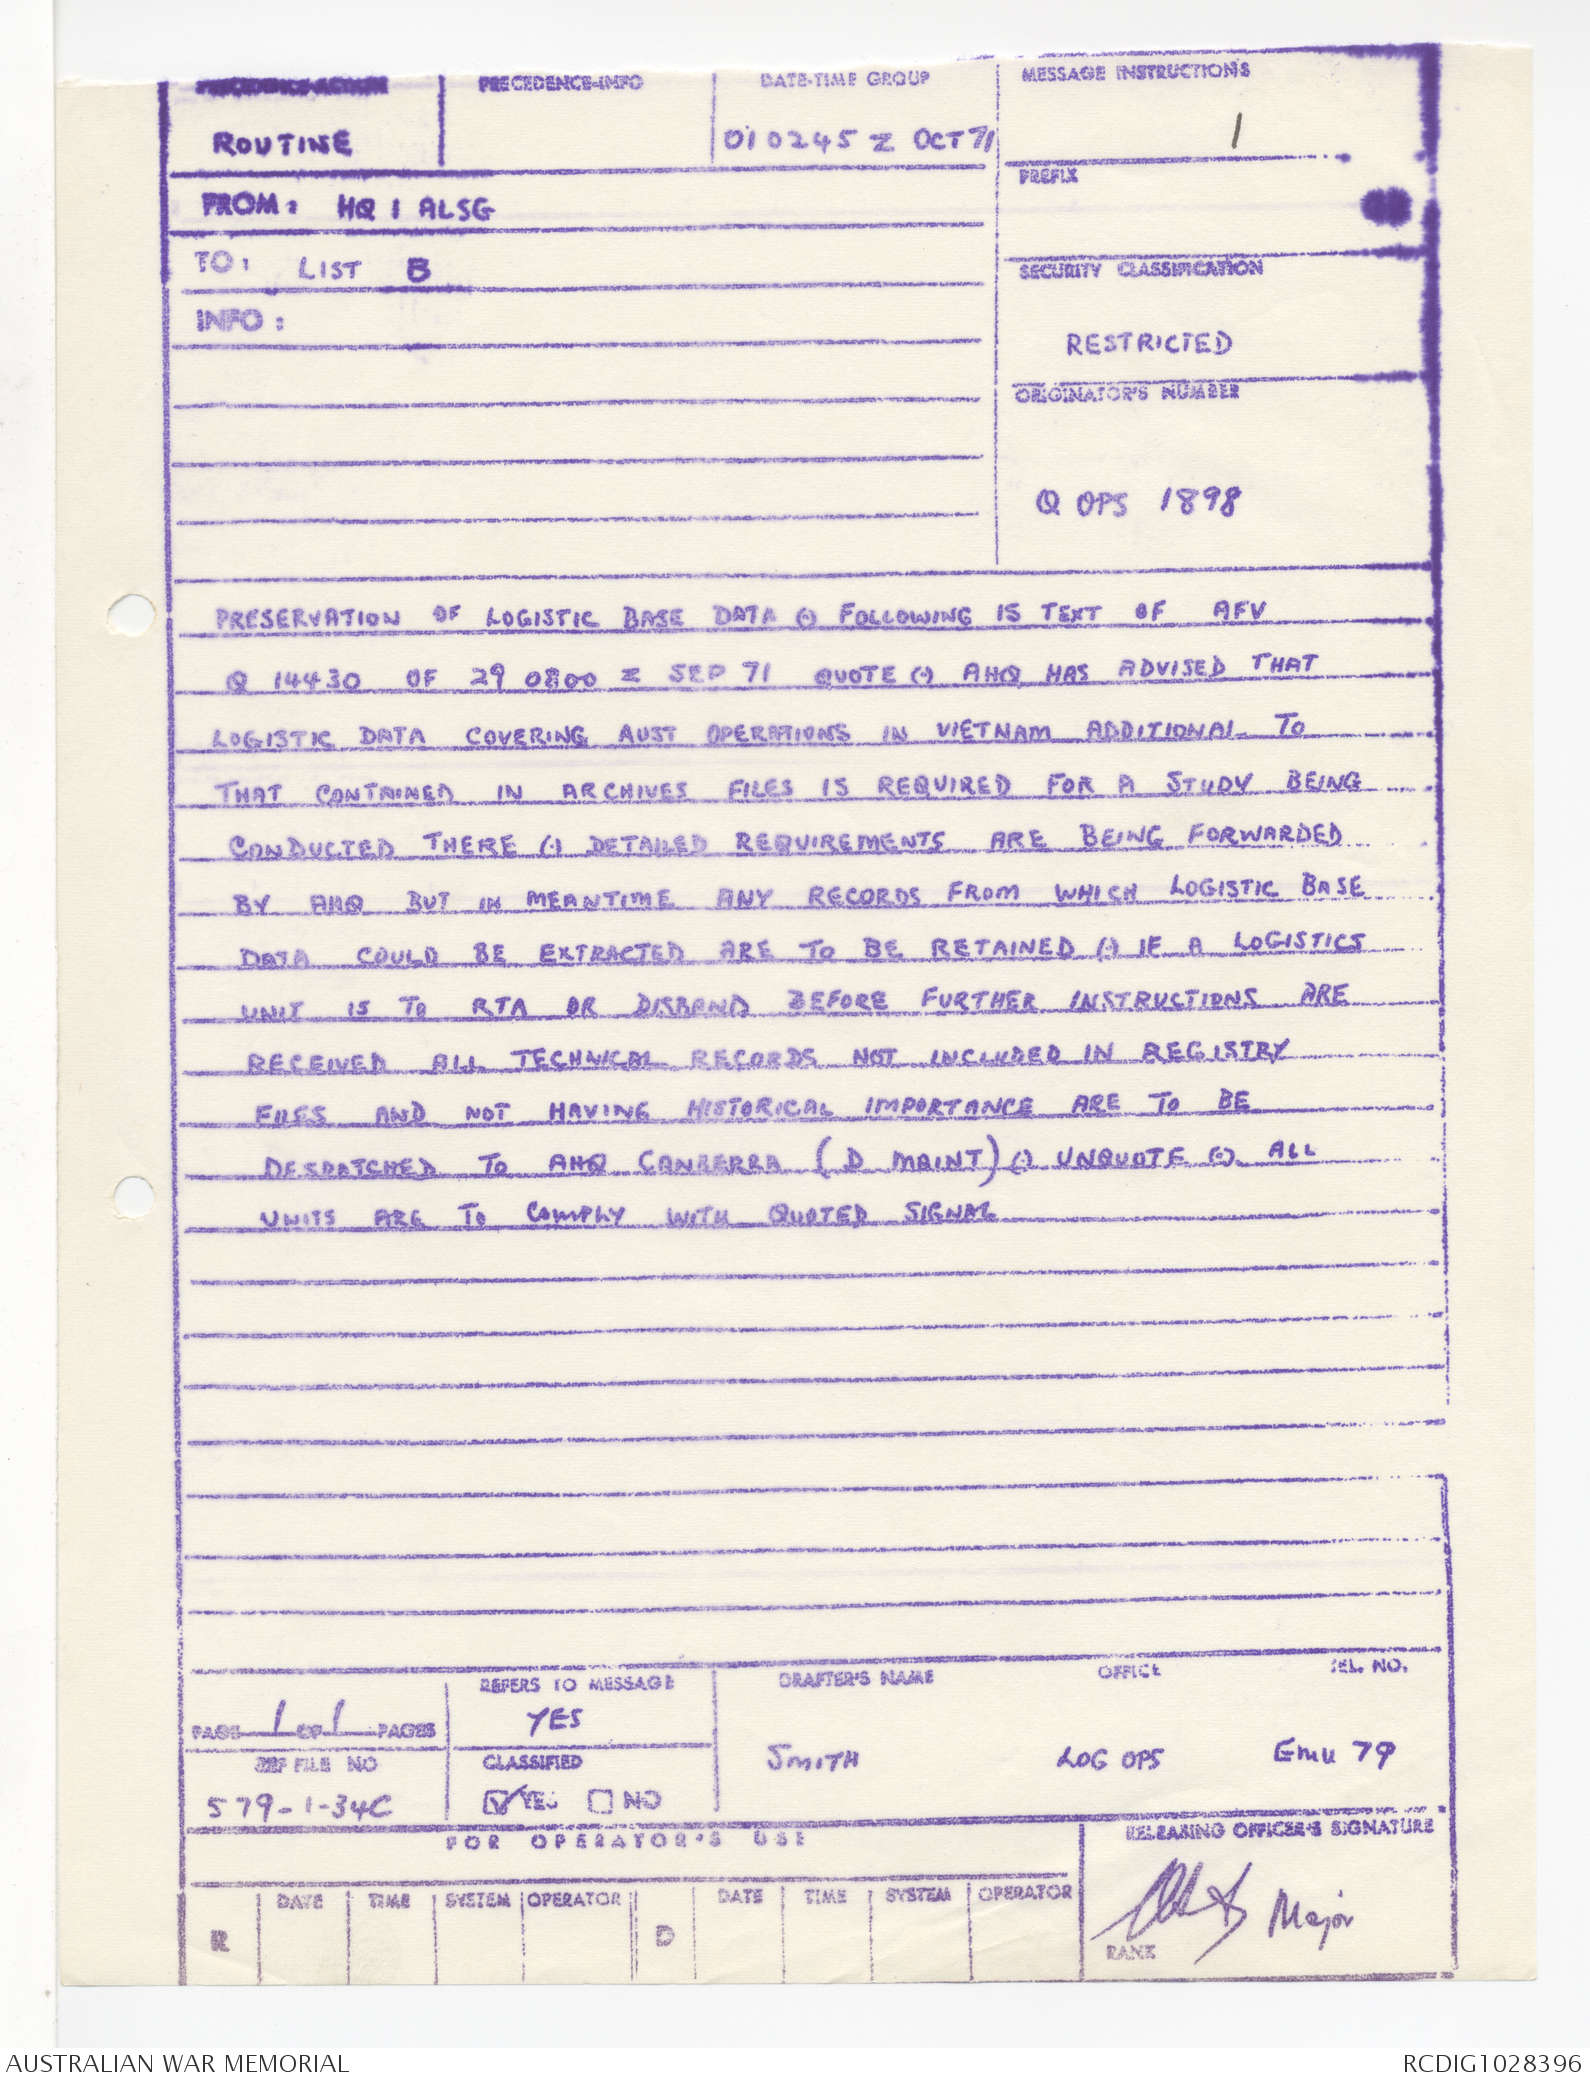 PRECEDENCE-ACTION PRECEDENCE-INFO DATE-TIME GROUP MESSAGE INSTRUCTIONS
ROUTINE 010245 Z OCT 71 1
PREFIX
FROM: HQ 1 ALSG
TO: LIST B
SECURITY CLASSIFICATION
INFO:
RESTRICTED
ORIGINATOR'S NUMBER
Q OPS 1898
PRESERVATION OF LOGISTIC BASE DATA (.) FOLLOWING IS TEXT OF AFV
Q 14430 OF 29 0800 Z SEP 71 QUOTE (.) AHQ HAS ADVISED THAT
LOGISTIC DATA COVERING AUST OPERATIONS IN VIETNAM ADDITIONAL TO
THAT CONTAINED IN ARCHIVES FILES IS REQUIRED FOR A STUDY BEING
CONDUCTED THERE (.) DETAILED REQUIREMENTS ARE BEING FORWARDED
BY AHQ BUT IN MEANTIME ANY RECORDS FROM WHICH LOGISTIC BASE
DATA COULD BE EXTRACTED ARE TO BE RETAINED (.) IF A LOGISTICS
UNIT IS TO RTA OR DISBAND BEFORE FURTHER INSTRUCTIONS ARE
RECEIVED ALL TECHNICAL RECORDS NOT INCLUDED IN REGISTRY
FILES AND NOT HAVING HISTORICAL IMPORTANCE ARE TO BE
DESPATCHED TO AHQ CANBERRA (D MAINT) (.) UNQUOTE (.) ALL
UNITS ARE TO COMPLY WITH QUOTED SIGNAL
REFERS TO MESSAGE DRAFTER'S NAME OFFICE TEL. NO.
PAGE 1 OF 1 PAGES YES
REF FILE NO CLASSIFIED SMITH LOG OPS Emu 79
579-1-34C YES NO
FOR OPERATOR'S USE RELEASING OFFICER'S SIGNATURE
DATE TIME SYSTEM OPERATOR DATE TIME SYSTEM OPERATOR
R D Major
RANK
AUSTRALIAN WAR MEMORIAL RCDIG1028396